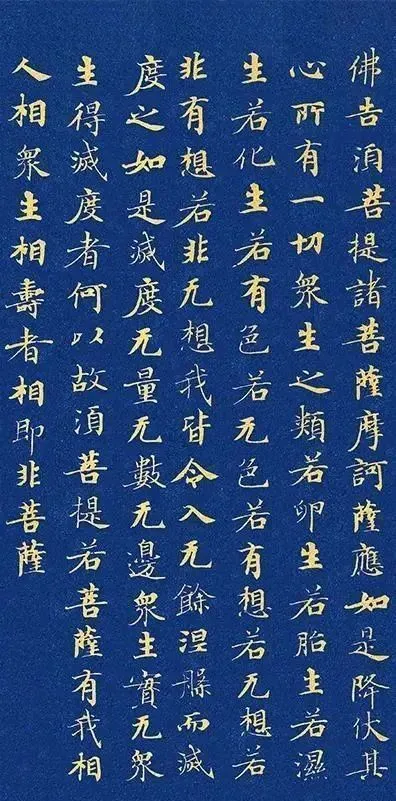 佛告須菩提諸菩薩摩訶薩應如是降伏其
心所有一切衆生之類若卵生若胎生若濕
生若化生若有色若无色若有想若无想若
非有想若非无想我皆令入无餘涅槃而滅
度之如是滅度无量无數无邊衆生實无衆
生得滅度者何以故須菩提若菩薩有我相
人相衆生相壽者相即非菩薩